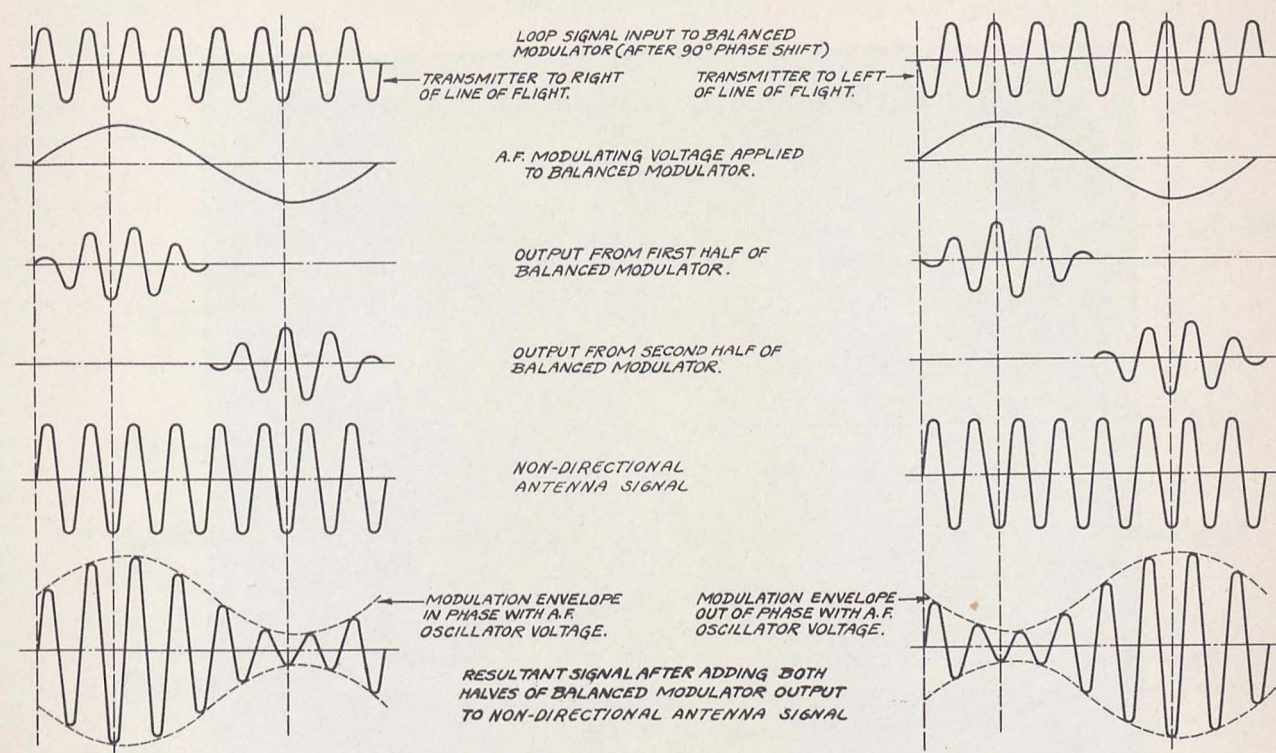 LOOP SIGNAL INPUT TO BALANCED
MODULATOR (AFTER 90° PHASE SHIFT)
TRANSMITTER TO RIGHT
OF LINE OF FLIGHT.
TRANSMITTER TO LEFT
OF LINE OF FLIGHT.
A.F. MODULATING VOLTAGE APPLIED
TO BALANCED MODULATOR.
OUTPUT FROM FIRST HALF OF
BALANCED MODULATOR.
OUTPUT FROM SECOND HALF OF
BALANCED MODULATOR.
NON-DIRECTIONAL
ANTENNA SIGNAL
MODULATION ENVELOPE
IN PHASE WITH A.F.
OSCILLATOR VOLTAGE.
MODULATION ENVELOPE
OUT OF PHASE WITH A.F.
OSCILLATOR VOLTAGE.
RESULTANT SIGNAL AFTER ADDING BOTH
HALVES OF BALANCED MODULATOR OUTPUT
TO NON-DIRECTIONAL ANTENNA SIGNAL